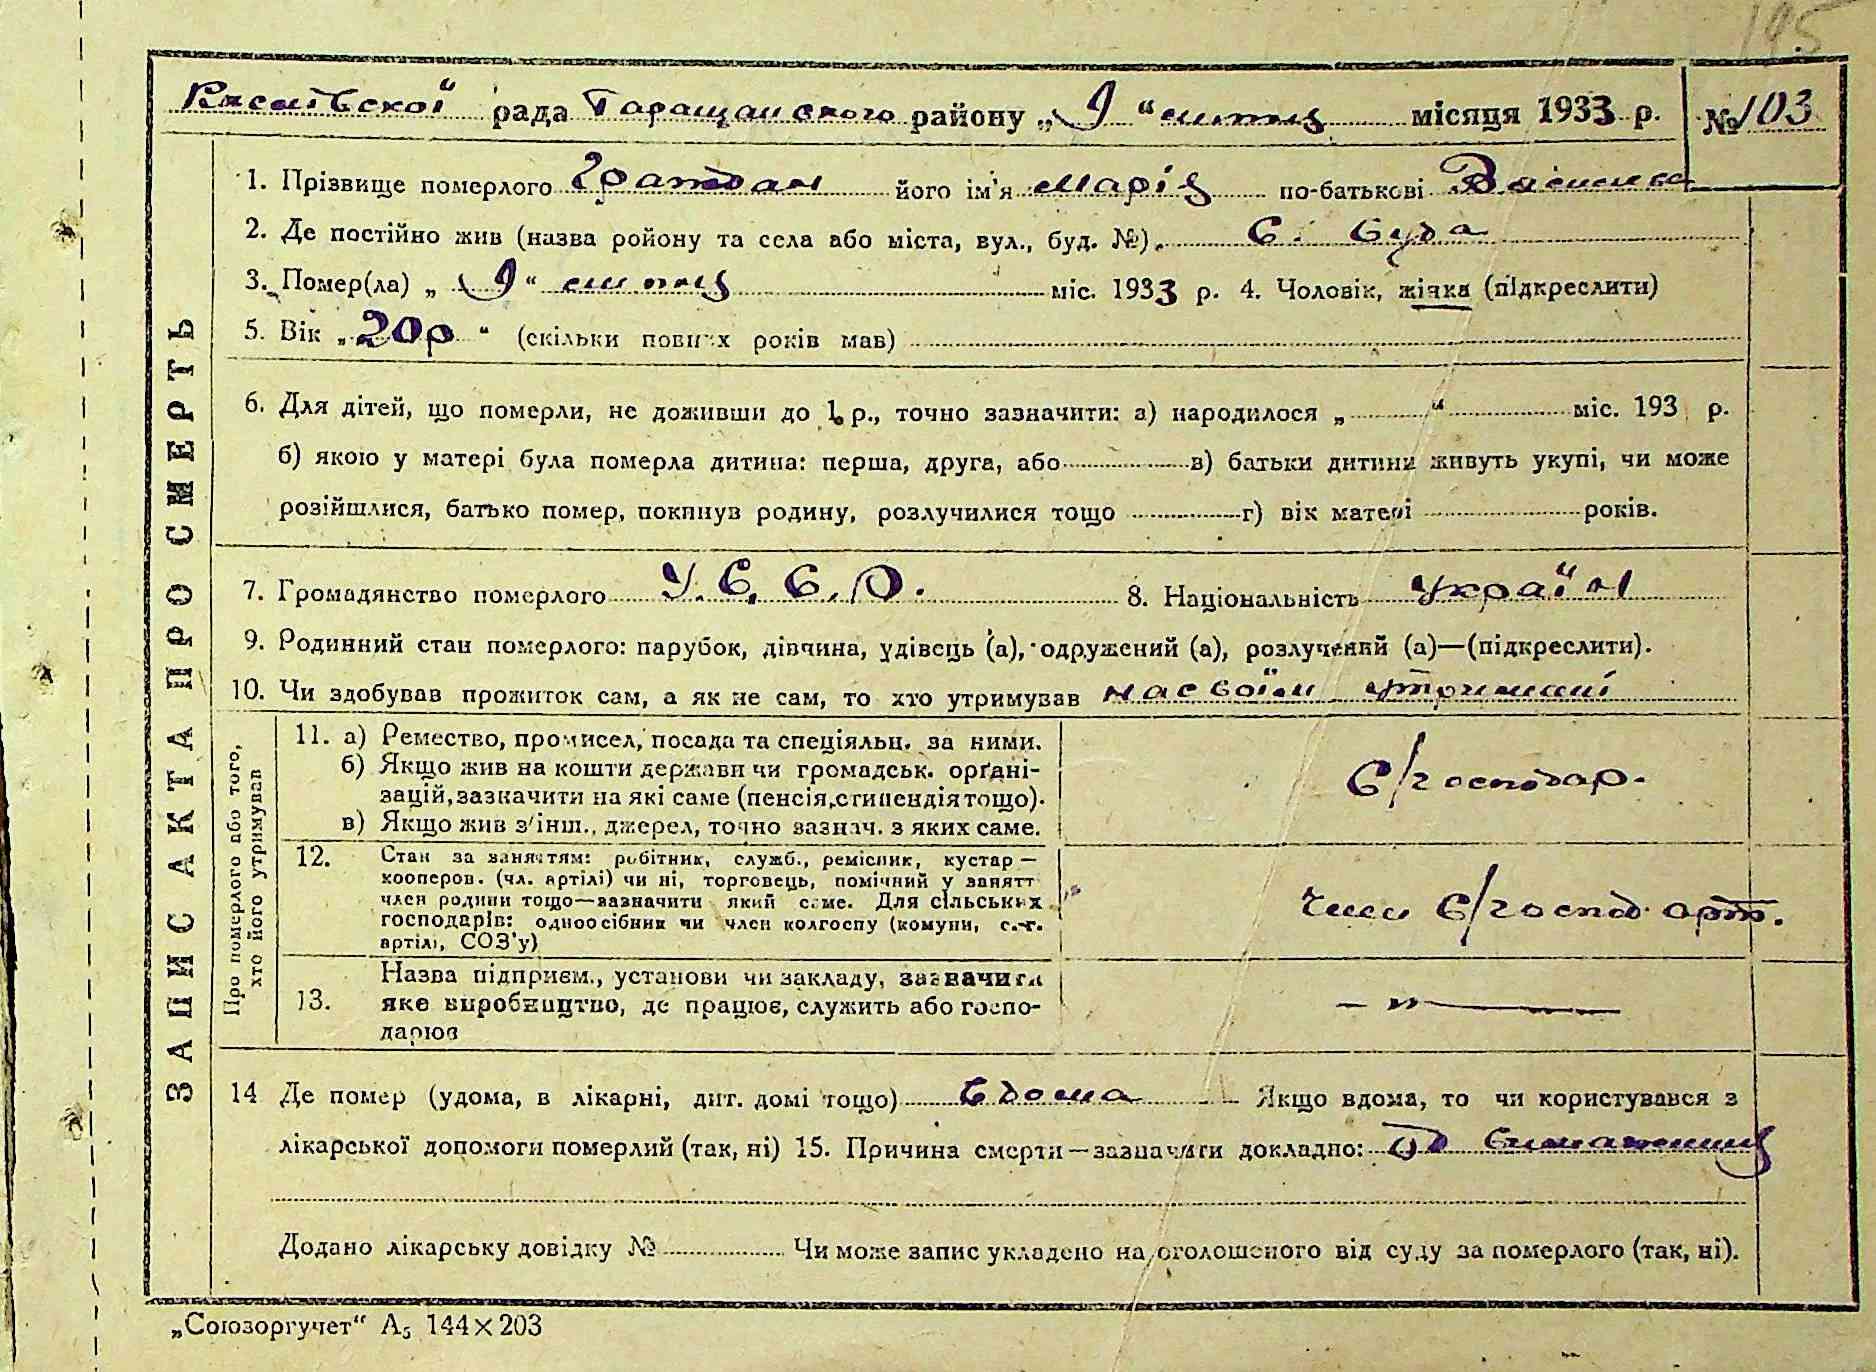 195
рада Таращанського району „ 9 “ липня місяця 1933 р. № 103
1. Прізвище померлого його ім'я Марія по-батькові
2. Де постійно жив (назва ройону та села або міста, вул., буд. №). С.
3. Помер(ла) „ 9 “ липня міс. 1933 р. 4. Чоловік, жінка (підкреслити)
5. Вік „ 20 р “ (скільки повних років мав)
6. Для дітей, що померли, не доживши до 1 р., точно зазначити: а) народилося „ “ міс. 193 р.
б) якою у матері була померла дитина: перша, друга, або в) батьки дитини живуть укупі, чи може
розійшлися, батько помер, покинув родину, розлучилися тощо г) вік матері років.
7. Громадянство померлого У. С. С. Р. 8. Національність Україн
9. Родинний стан померлого: парубок, дівчина, удівець (а), одружений (а), розлучений (а)—(підкреслити).
10. Чи здобував прожиток сам, а як не сам, то хто утримував на своїм утриманні
ЗАПИС АКТА ПРО СМЕРТЬ
Про померлого або того,
хто його утримував
11. а) Ремество, промисел, посада та спеціяльн. за ними.
б) Якщо жив на кошти держави чи громадськ. орґані-
зацій, зазначити на які саме (пенсія, стипендія тощо).
в) Якщо жив з інш., джерел, точно зазнач. з яких саме.
С/господар.
12. Стан за заняттям: робітник, служб., ремісник, кустар —
кооперов. (чл. артілі) чи ні, торговець, помічний у занятт
член родини тощо—зазначити який саме. Для сільських
господарів: одноосібник чи член колгоспу (комуни, с.-г.
артілі, СОЗ'у)
член С/господ. арт.
13. Назва підприєм., установи чи закладу, зазначити
яке виробництво, де працює, служить або госпо-
дарює
— „ —
14 Де помер (удома, в лікарні, дит. домі тощо) вдома Якщо вдома, то чи користувався з
лікарської допомоги померлий (так, ні) 15. Причина смерти—зазначити докладно: Од
Додано лікарську довідку № Чи може запис укладено на оголошеного від суду за померлого (так, ні).
„Союзоргучет“ А5 144×203